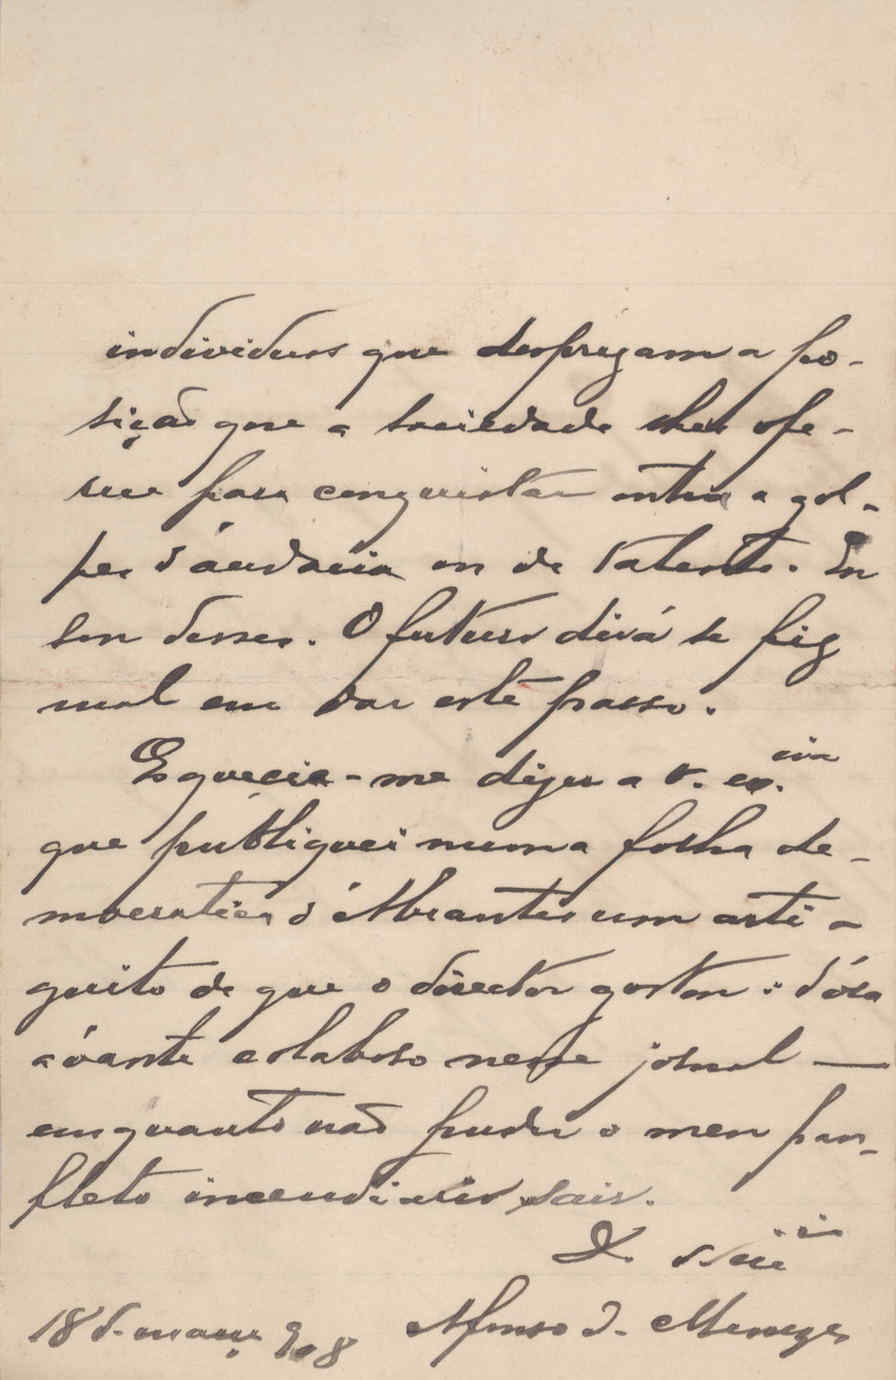 individuos que despregam a po-
sição que a sociedade lhes ofe-
rece para conquistar outra a gol-
pes d'áudacia ou de talento. Eu
sou desses. O futuro dirá se fiz
mal em dar este passo.
Esquecia-me dizer a v. ex.cia
que publiquei numa folha de-
mocratica d'Abrantes um arti-
guito de que o director gostou: d'óra
ávante colaboro nesse jornal —
emquanto não puder o meu pan-
fleto incendiario sair.
D. V.
18 d. março 908 Afonso d. Menezes